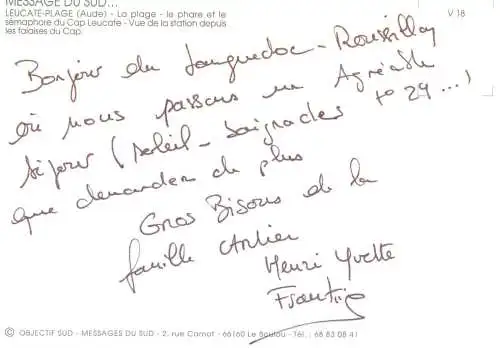 MESSAGE DU SUD...
LEUCATE-PLAGE (Aude) - La plage - le phare et le
sémaphore du Cap Leucate - Vue de la station depuis
les falaises du Cap.
V 18
Bonjour du Languedoc-Roussillon
où nous passons un Agréable
séjour (soleil - baignades to 29...)
que demander de plus
Gros Bisous de la
famille
Henri Yvette
© OBJECTIF SUD - MESSAGES DU SUD - 2, rue Carnot - 66160 Le Boulou - Tél. : 68 83 08 41